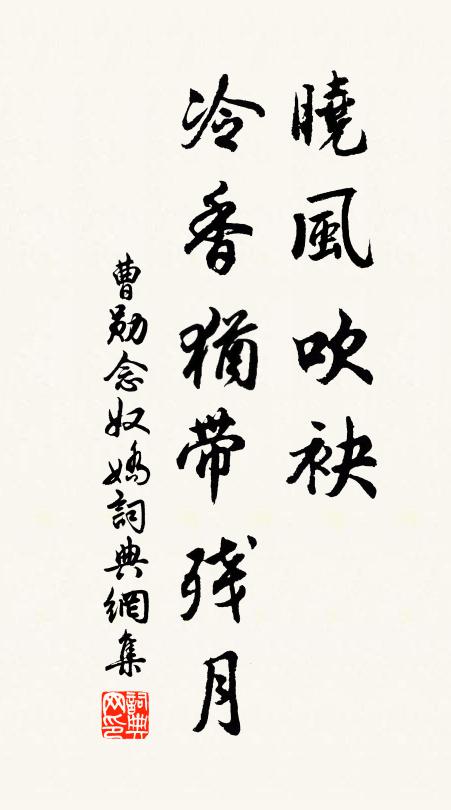 曉風吹袂
冷香猶带残月
曹勛念奴嬌詞典網集
詞典網印